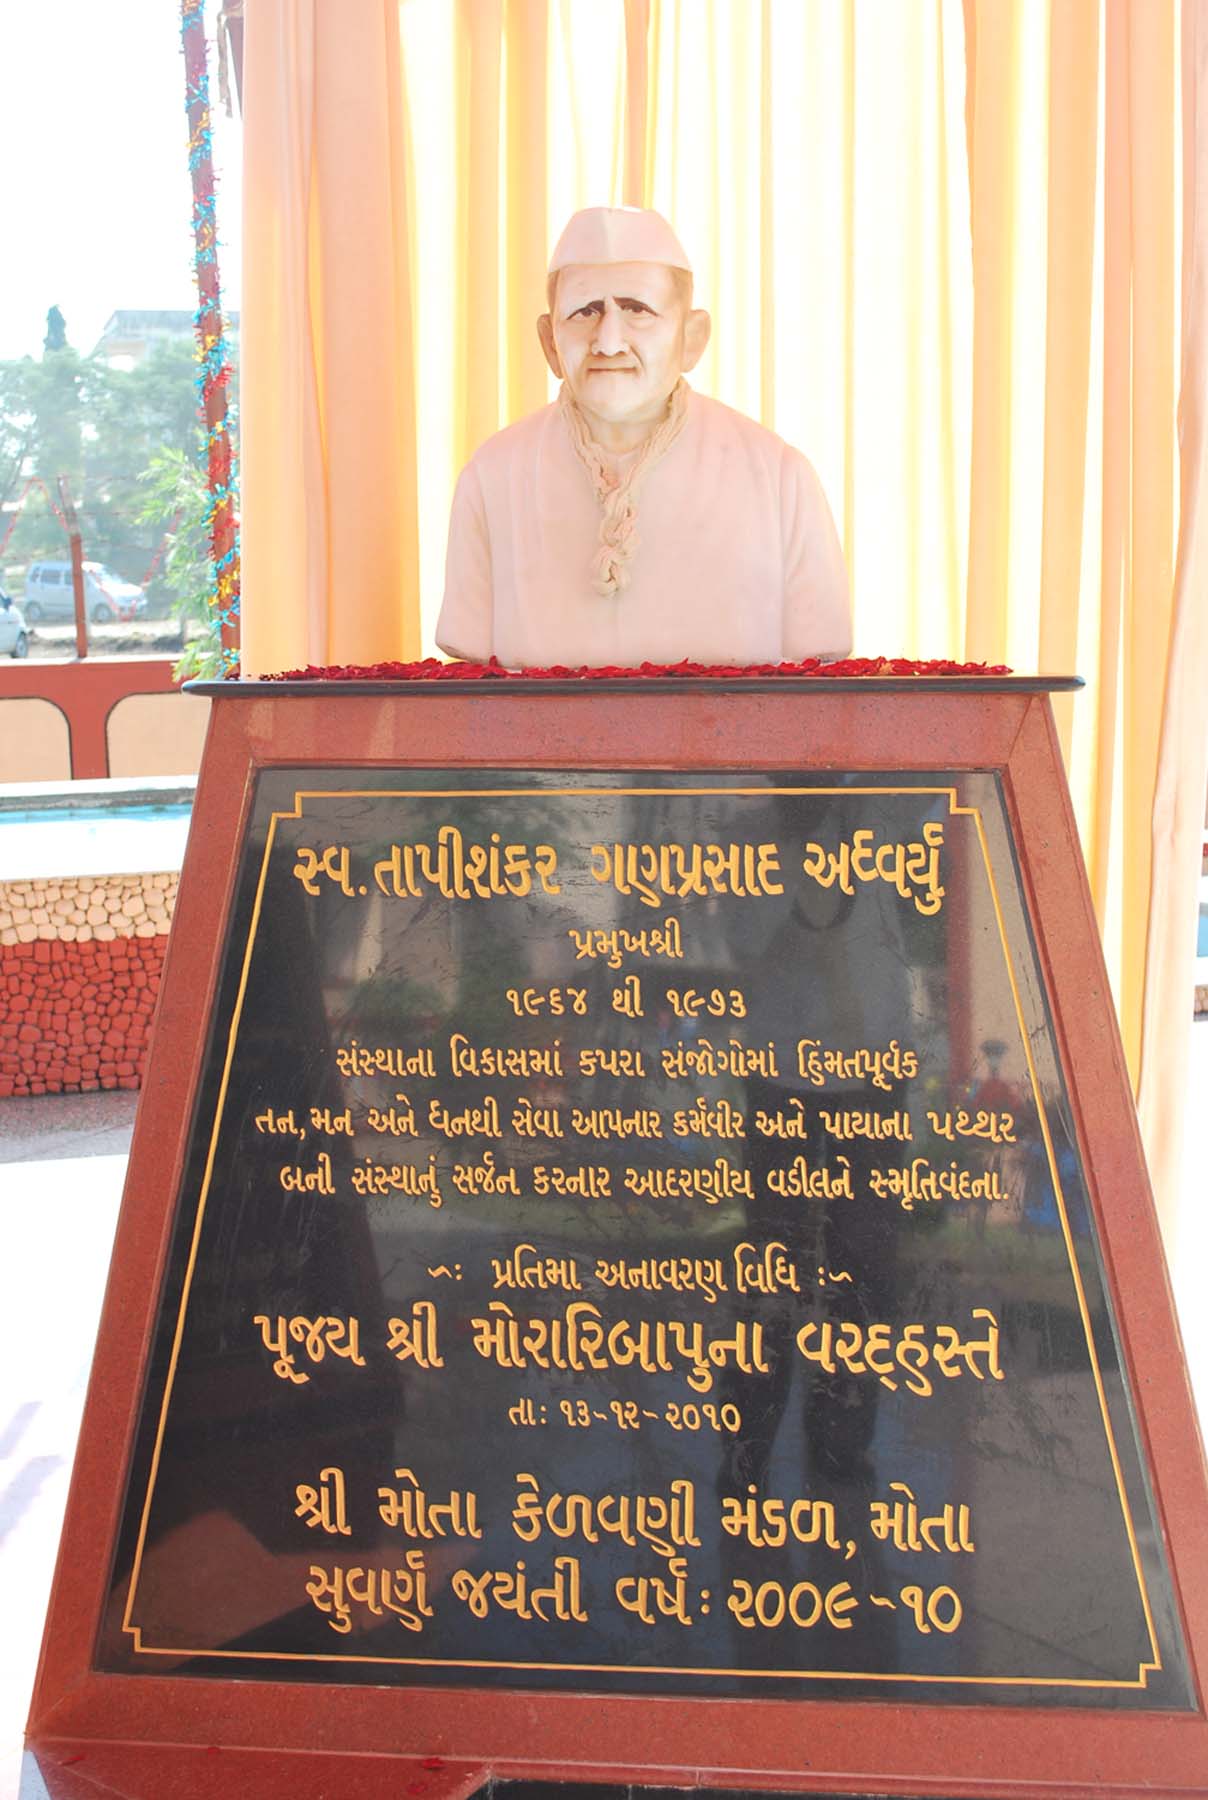 સ્વ. તાપીશંકર ગણપ્રસાદ અર્ધ્વર્યું
પ્રમુખશ્રી
૧૯૬૪ થી ૧૯૭૩
સંસ્થાના વિકાસમાં કપરા સંજોગોમાં હિંમતપૂર્વક
તન, મન અને ધનથી સેવા આપનાર કર્મવીર અને પાયાના પથ્થર
બની સંસ્થાનું સર્જન કરનાર આદરણીય વડીલને સ્મૃતિવંદના.
~: પ્રતિમા અનાવરણ વિધિ :~
પૂજ્ય શ્રી મોરારિબાપુના વરદ્હસ્તે
તા: ૧૩-૧૨-૨૦૧૦
શ્રી મોતા કેળવણી મંડળ, મોતા
સુવર્ણ જયંતી વર્ષ: ૨૦૦૯-૧૦